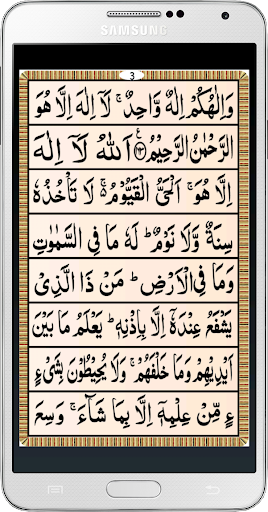 SAMSUNG
3
وَاِلٰهُكُمْ اِلٰهٌ وَّاحِدٌ ۚ لَآ اِلٰهَ اِلَّا هُوَ
الرَّحْمٰنُ الرَّحِيْمُ ﴿﴾ اَللّٰهُ لَآ اِلٰهَ
اِلَّا هُوَ ۚ اَلْحَىُّ الْقَيُّوْمُ ۚ لَا تَاْخُذُهٗ
سِنَةٌ وَّلَا نَوْمٌ ؕ لَهٗ مَا فِى السَّمٰوٰتِ
وَمَا فِى الْاَرْضِ ؕ مَنْ ذَا الَّذِىْ
يَشْفَعُ عِنْدَهٗٓ اِلَّا بِاِذْنِهٖ ؕ يَعْلَمُ مَا بَيْنَ
اَيْدِيْهِمْ وَمَا خَلْفَهُمْ ۚ وَلَا يُحِيْطُوْنَ بِشَىْءٍ
ءٍ مِّنْ عِلْمِهٖٓ اِلَّا بِمَا شَآءَ ۚ وَسِعَ